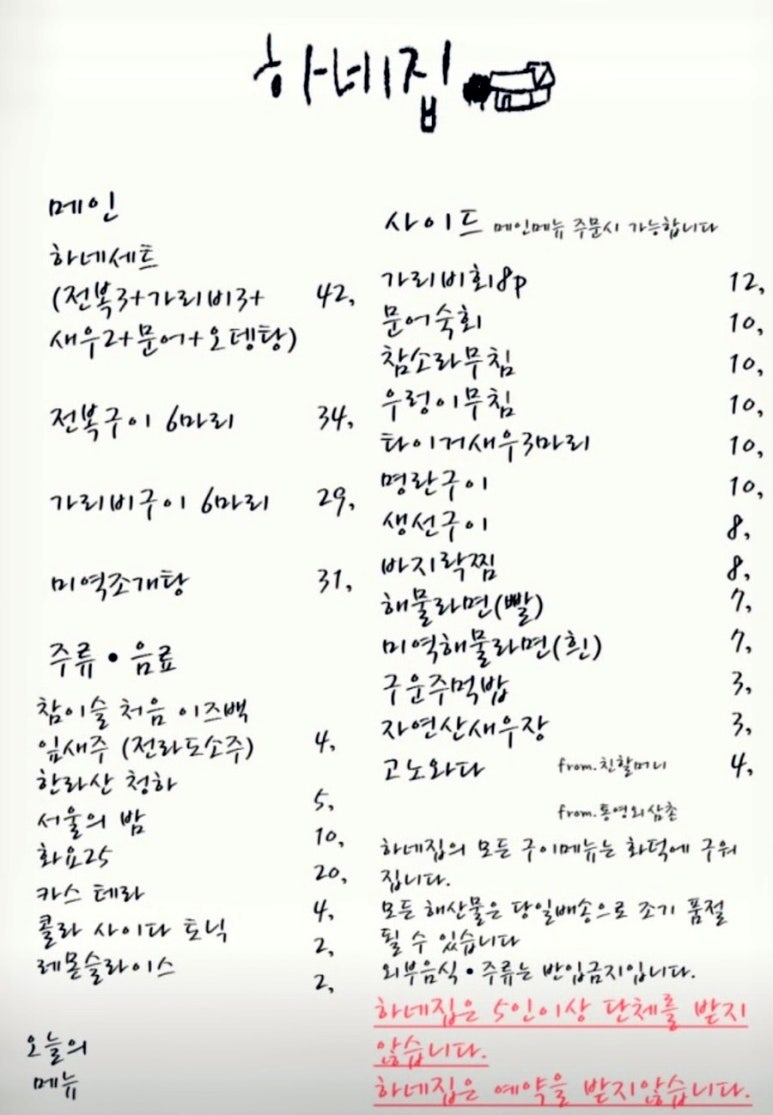 하네집
메인
하네세트
(전복3+가리비3+ 42,
새우2+문어+오뎅탕)
전복구이 6마리 34,
가리비구이 6마리 29,
미역조개탕 31,
주류•음료
참이슬 처음 이즈백
잎새주 (전라도소주) 4,
한라산 청하
5,
서울의 밤
10,
화요25
20,
카스 테라
4,
콜라 사이다 토닉
2,
레몬슬라이스
2,
오늘의
메뉴
사이드 메인메뉴 주문시 가능합니다
가리비회8p 12,
문어숙회 10,
참소라무침 10,
우렁이무침 10,
타이거새우3마리 10,
명란구이 10,
생선구이 8,
바지락찜 8,
해물라면(빨) 7,
미역해물라면(흰) 7,
구운주먹밥 3,
자연산새우장 3,
고노와다 from.친할머니 4,
from.통영외삼촌
하네집의 모든 구이메뉴는 화덕에 구워
집니다.
모든 해산물은 당일배송으로 조기 품절
될 수 있습니다
외부음식•주류는 반입금지입니다.
하네집은 5인이상 단체를 받지
않습니다.
하네집은 예약을 받지않습니다.